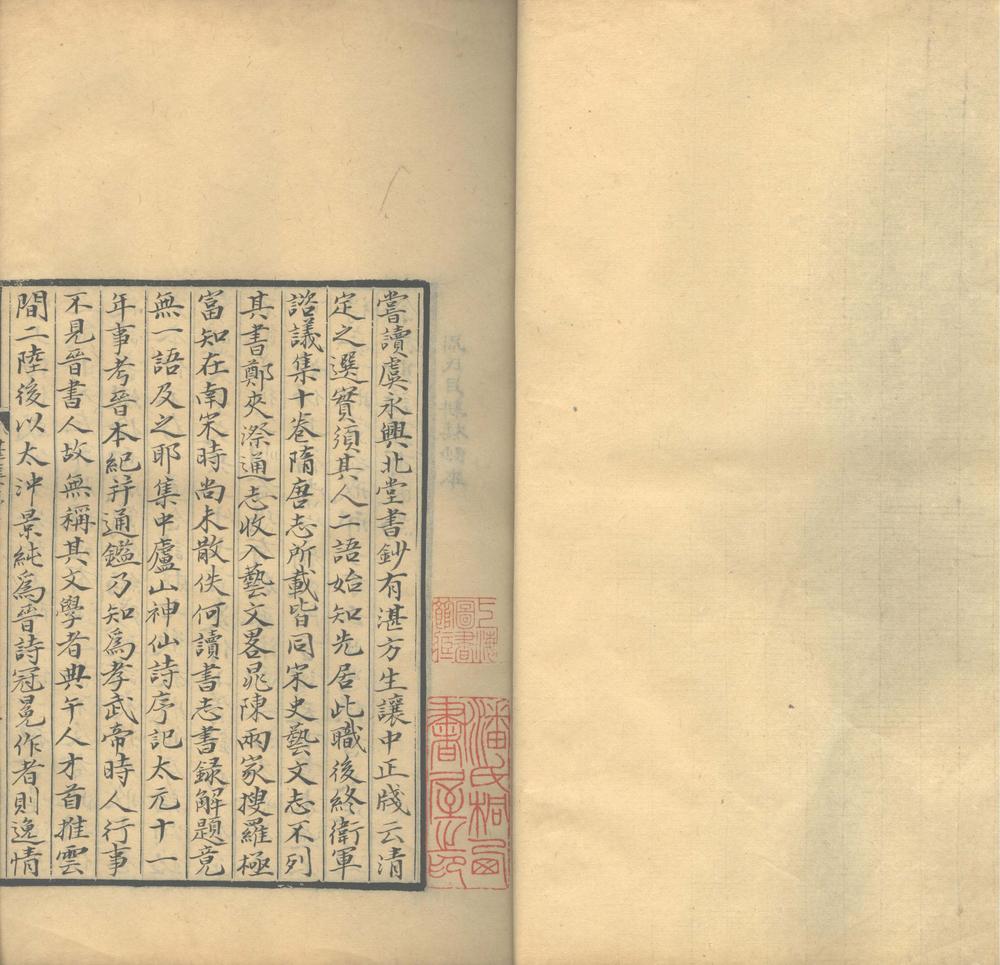 嘗讀虞永興北堂書鈔有湛方生讓中正牋云清
定之選實須其人二語始知先居此職後終衛軍
諮議集十卷隋唐志所載皆同宋史藝文志不列
其書鄭夾漈通志收入藝文畧晁陳兩家搜羅極
富知在南宋時尚未散佚何讀書志書録解題竟
無一語及之耶集中廬山神仙詩序記太元十一
年事考晉本紀并通鑑乃知爲孝武帝時人行事
不見晉書人故無稱其文學者典午人才首推雲
間二陸後以太沖景純爲晉詩冠冕作者則逸情
上海
圖書
館藏
潘氏桐西
書屋之印